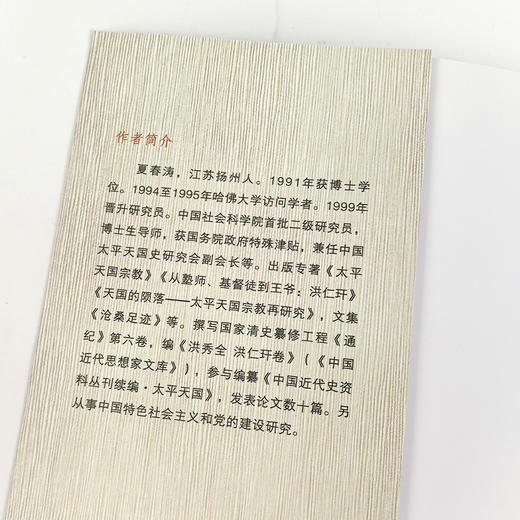 作者简介
夏春涛，江苏扬州人。1991年获博士学
位。1994至1995年哈佛大学访问学者。1999年
晋升研究员。中国社会科学院首批二级研究员，
博士生导师，获国务院政府特殊津贴，兼任中国
太平天国史研究会副会长等。出版专著《太平
天国宗教》《从塾师、基督徒到王爷：洪仁玕》
《天国的陨落——太平天国宗教再研究》，文集
《沧桑足迹》等。撰写国家清史纂修工程《通
纪》第六卷，编《洪秀全 洪仁玕卷》（《中国
近代思想家文库》），参与编纂《中国近代史资
料丛刊续编·太平天国》，发表论文数十篇。另
从事中国特色社会主义和党的建设研究。